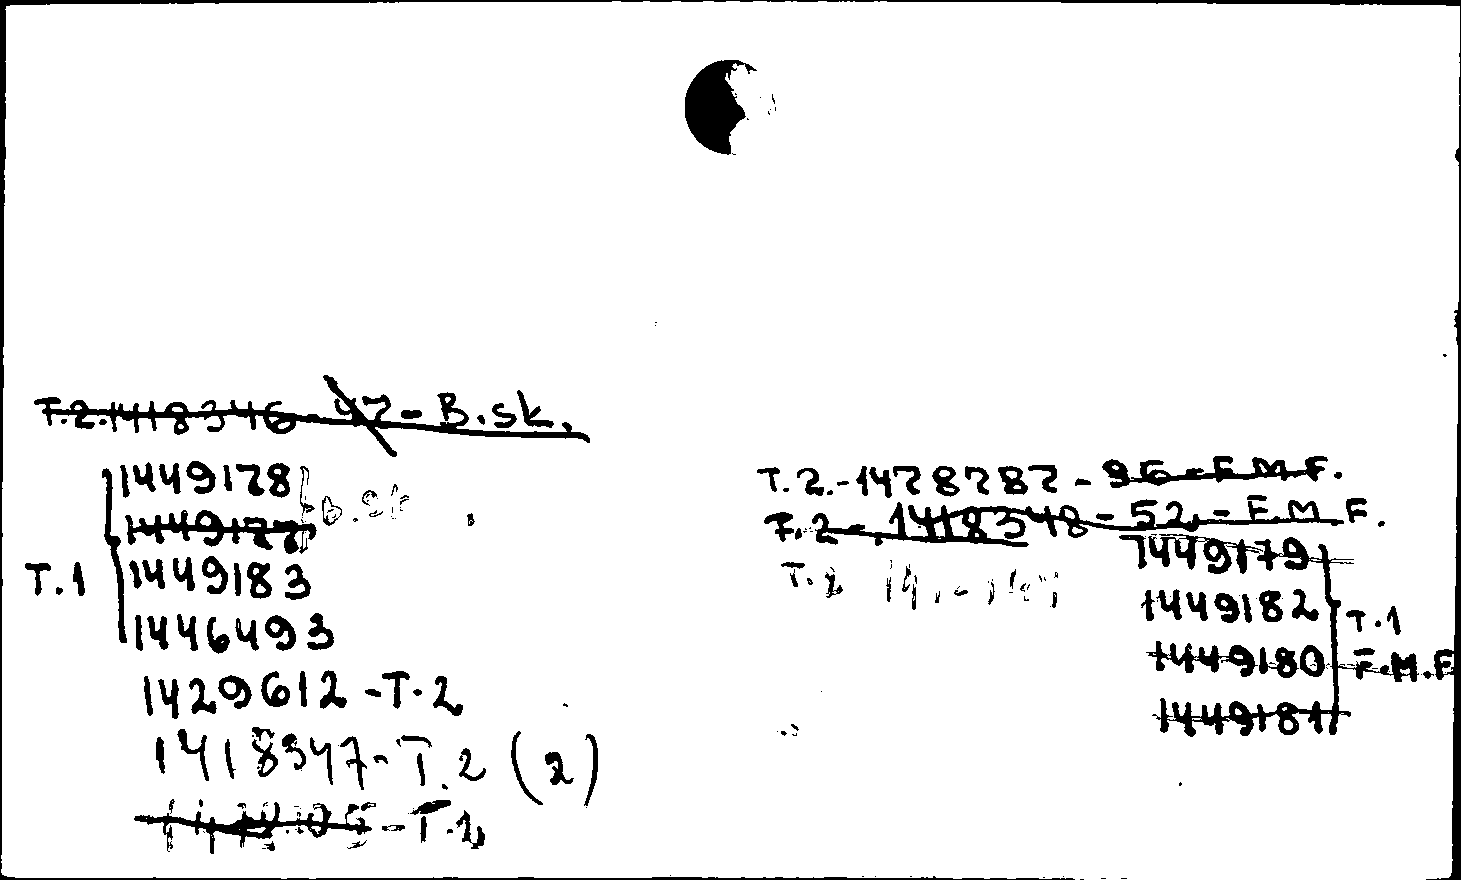 T.2.1418346-47-B.sk.
1449178
1449177 B.sk
T.1 1449183
1446493
1429612-T.2
1418347-T.2 (2)
-T.2
T.2.-1478787-96-F.M.F.
T.2-.1418348-52,-F.M.F.
1449179
T.2
1449182 T.1
1449180 F.M.F
1449181